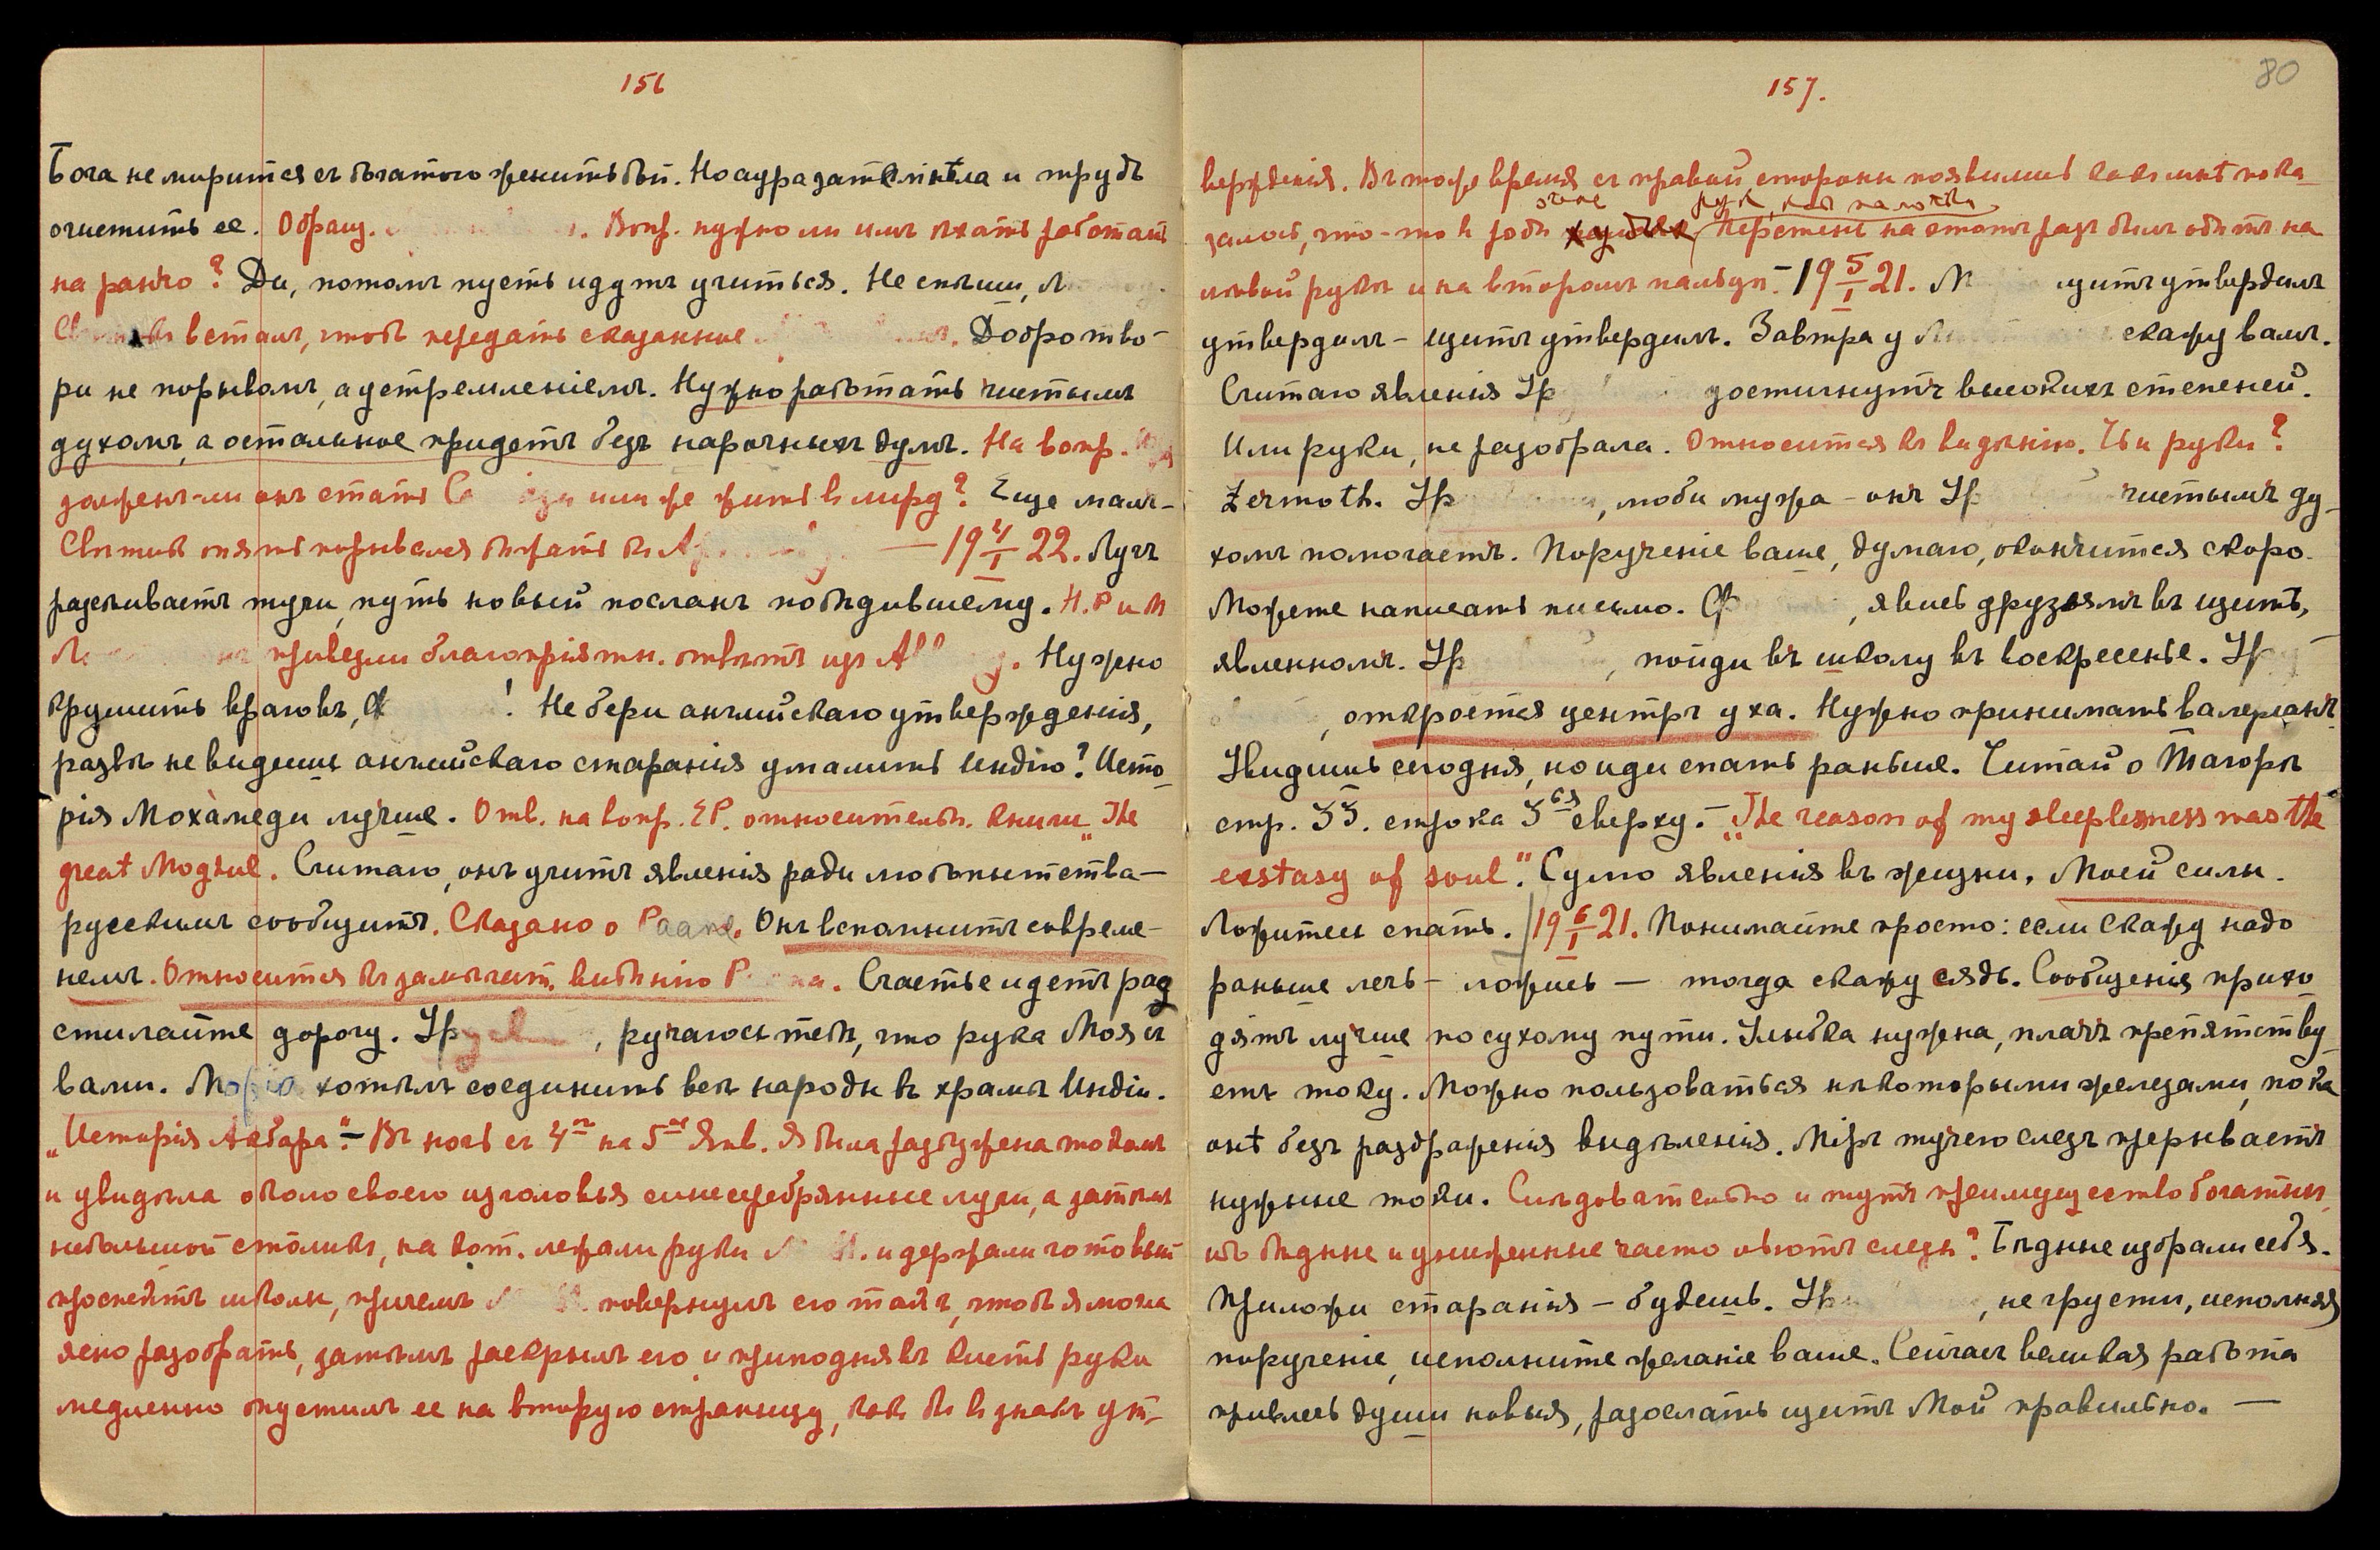 156
Бога не мирится съ богатого женитьбой. Но аура затемнѣла и трудъ
очистить ее. Обращ. Вопр. нужно ли имъ ѣхать работать
на ранчо? Да, потомъ пусть идутъ учиться. Не спѣши,
всталъ, чтобъ передать сказанное. Добротво-
ри не порывомъ, а устремленіемъ. Нужно работать чистымъ
духомъ, а остальное придетъ безъ нарочныхъ думъ. На вопр.
долженъ-ли онъ стать или же жить въ миру? Еще малъ-
Свѣтикъ опять порывался бѣжать въ — 19 4/I 22. Лучъ
разсѣиваетъ тучи, путь новый посланъ побѣдившему. Н.Р и М
привезли благопріятн. отвѣтъ изъ Нужно
крушить враговъ, ! Не бери англійскаго утвержденія,
развѣ не видишь англійскаго старанія умалить Индію? Исто-
рія Мохамеди лучше. Отв. на вопр. ЕР. относительн. книги „The
great Moghul. Считаю, онъ учитъ явленія ради любопытства —
русскимъ сообщитъ. Сказано о Онъ вспомнитъ современе-
немъ. Относится къ замѣчат. видѣнію Счастье идетъ раз
стилайте дорогу. Ур , ручаюсь тебѣ, что рука Моя съ
вами. Морія хотѣлъ соединить всѣ народы въ храмѣ Индіи.
„Исторія Акбара“ — Въ ночь съ 4го на 5ое Янв. Я была разбужена токомъ
и увидѣла около своего изголовья синесеребрянные лучи, а затѣмъ
небольшой столикъ, на кот. лежали руки М. М. и держали готовый
проспектъ школы, причемъ повернулъ его такъ, чтобъ я могла
ясно разобрать, затѣмъ раскрылъ его и приподнявъ кисть руки
медленно опустилъ ее на вторую страницу, какъ бы въ знакъ ут-
157.
80
вержденія. Въ тоже время съ правой стороны появились какъ мнѣ пока-
залось, что-то въ родѣ Перстень на этотъ разъ былъ одѣтъ на
лѣвой рукѣ и на второмъ пальцѣ. — 19 5/I 21. М щитъ утвердилъ
утвердилъ — щитъ утвердилъ. Завтра у скажу вамъ.
Считаю явленія Ур достигнутъ высокихъ степеней.
Или руки, не разобрала. Относится къ видѣнію. Чьи руки?
Zermoth. Ур , люби мужа — онъ Ур чистымъ ду-
хомъ помогаетъ. Порученіе ваше, думаю, окончится скоро.
Можете написать письмо. , явись друзьямъ въ щитѣ,
явленномъ. Ур , пойди въ школу въ воскресенье. Ур
, откроется центръ уха. Нужно принимать валеріанъ
Увидишь сегодня, но иди спать раньше. Читай о Тагорѣ
стр. 33. строка 3ья сверху. — „The reason of my sleeplesness was the
exstasy of soul“. Сумю явленія въ жизни, Моей силы.
Ложитесь спать. /19 6/I 21. Понимайте просто: если скажу надо
раньше лечь — ложись — тогда скажу сядь. Сообщенія прихо
дятъ лучше по сухому пути. Улыбка нужна, плачъ препятству-
етъ току. Можно пользоваться нѣкоторыми железами, пока
онѣ безъ раздраженія выдѣленія. Міръ тучею слезъ прерываетъ
нужные токи. Слѣдовательно и тутъ преимущество богатымъ,
ибо бѣдные и униженные часто льютъ слезы? Бѣдные избрали себя.
Приложи старанія — будешь. Ур , не грусти, исполняя
порученіе, исполните желаніе ваше. Сейчасъ великая работа
привлечь души новыя, разослать щитъ Мой правильно. —